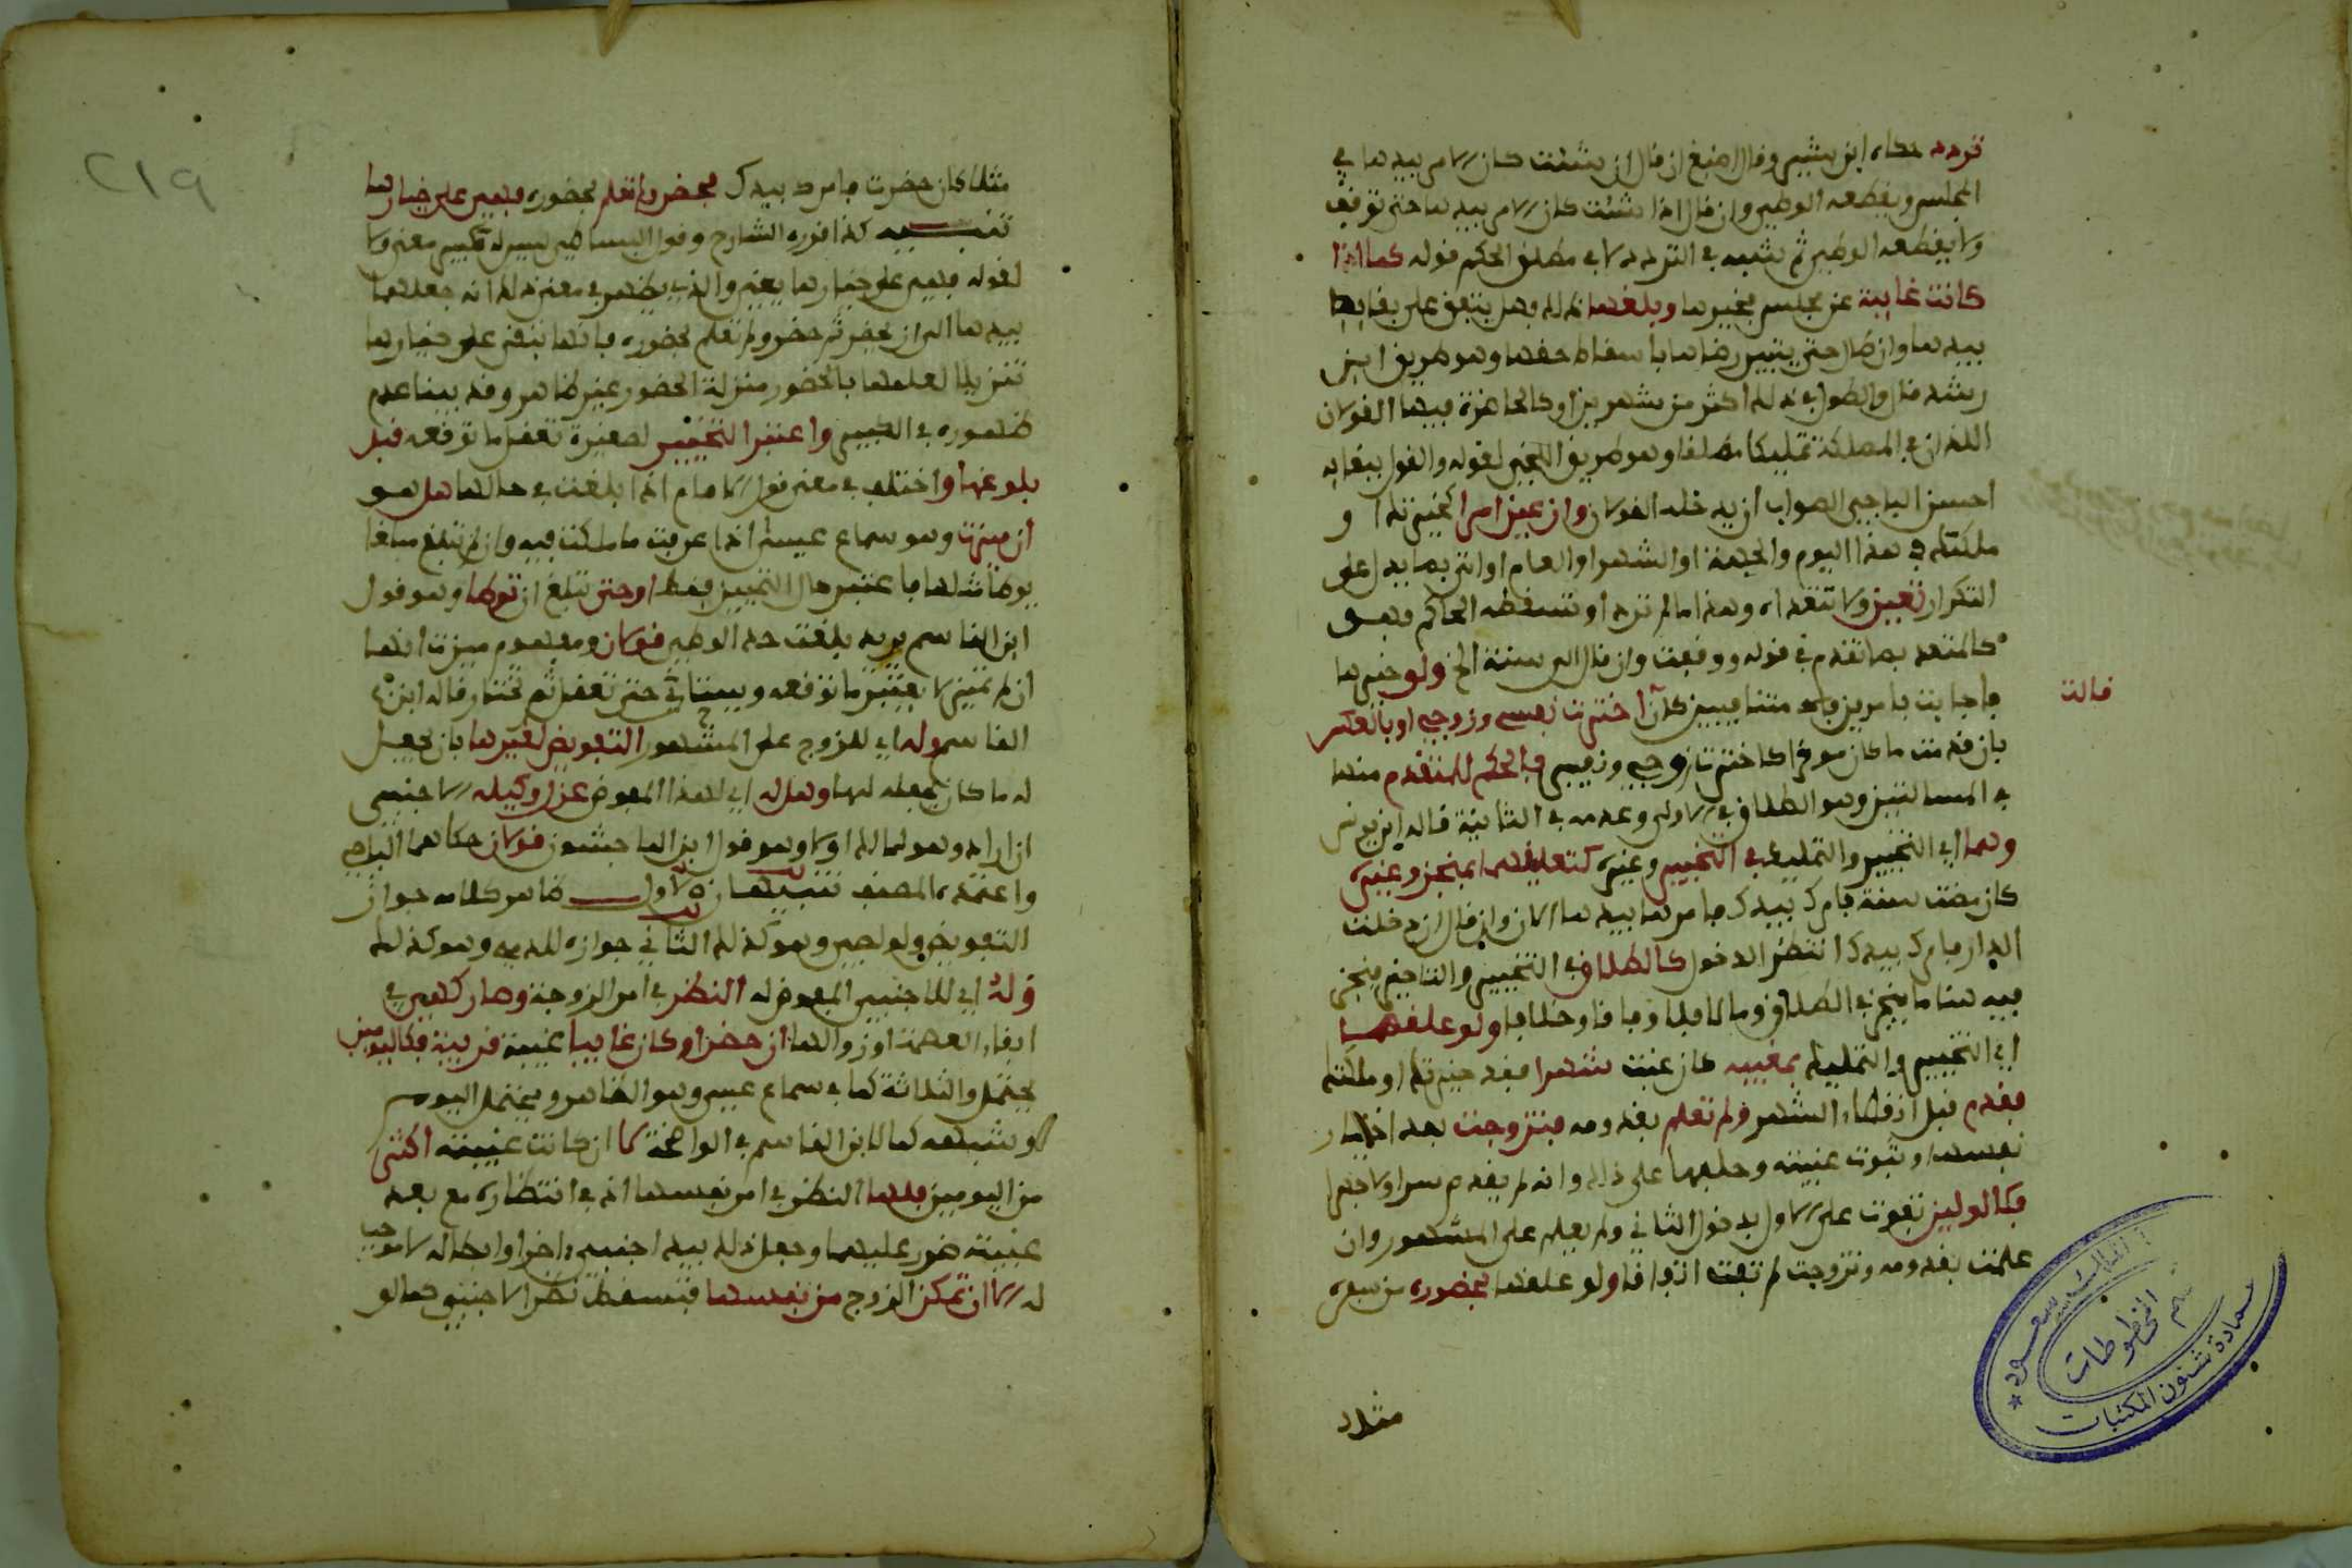 تردد حكاه ابن بشير وقال اصبغ ان قال ان شئت كان الامر بيدها في
المجلس ويقطعه الوطء وان قال اذا شئت كان الامر بيدها حتى توقف
ولا يقطعه الوطء ثم شبه في التردد لا في مطلق الحكم قوله كما اذا
كانت غايبة عن مجلس تخييرها وبلغها ذلك وهل يتفق على بقايه
بيدها وان طال حتى يتبين رضاها باسقاط حقها وهو طريق ابن
رشد قال والطول في ذلك اكثر من شهرين او كالحاضرة فيها القولان
اللذان في المملكة تمليكا مطلقا وهو طريق اللخمي لقوله والقول ببقايه
احسن الباجي الصواب ان يدخله القولان وان عين امرا كخيرتك او
ملكتك في هذا اليوم والجمعة او الشهر او العام او اتى بما يدل على
التكرار تعين ولا تتعداه وهذا ما لم ترد او تسقطه الحاكم فهو
كالمتعدد بما تقدم في قوله ووقفت وان قال الى سنة الخ ولو خيرها
قالت
فاجابت بامرين متنافيين كان اخترت نفسي وزوجي او بالعكس
بان قدمت ما كان موخرا كاخترت زوجي ونفسي فالحكم للمتقدم منهما
في المسالتين وهو الطلاق في الاولى وعدمه في الثانية قاله ابن يونس
وهما اي التخيير والتمليك في التخيير وغيره كتعليقهما بمنجز وغيره
كان مضت سنة فامرك بيدك فامرها بيدها الان وان قال ان دخلت
الدار فامرك بيدك انتظر الدخول كالطلاق في التخيير والتاخير ينجز
فيه هنا ما ينجز في الطلاق وما لا فلا وفاقا وخلافا ولو علقهما
اي التخيير والتمليك بمغيبه كان غبت شهرا فقد خيرتك او ملكتك
فقدم قبل انقضاء الشهر ولم تعلم بقدومه فتزوجت بعد اختيار
نفسها وثبوت غيبته وحلفها على ذلك وانه لم يقدم سرا ولا جهرا
فكالوليين تفوت على الاول بدخول الثاني ولم يعلم على المشهور وان
علمت بقدومه وتزوجت لم تفت اتفاقا ولو علقهما بحضوره من سفره
مثلا
عمادة شئون المكتبات
قسم المخطوطات
٢١٩
مثلا كان حضرت فامرك بيدك فحضر ولم تعلم بحضوره فهي على خيارها
تنبيه كذا قرره الشارح وقول البساطي ليس له كبير معنى ولا
لقوله فهي على خيارها يعني والذي يظهر في معنى ذلك انه جعلهما
بيدها الى ان يحضر ثم حضر ولم تعلم بحضوره فانها تبقى على خيارها
تنزيلا لعلمها بالحضور منزلة الحضور غير ظاهر وقد بينا عدم
ظهوره في الكبير واعتبر التخيير لصغيرة تعقل ما توقعه قبل
بلوغها واختلف في معنى قول الامام اذا بلغت في حالها هل هو
ان ميزت وهو سماع عيسى اذا عرفت ما ملكت فيه وان لم تبلغ مبلغا
يوطا مثلها فاعتبر حال التمييز فقط او حتى تبلغ ان توطا وهو قول
ابن القاسم يريد بلغت حد الوطء قولان ومفهوم ميزت انها
ان لم تميز لا يعتبر ما توقعه ويستانى حتى تعقل ثم تختار قاله ابن
القاسم وله اي للزوج على المشهور التفويض لغيرها بان يجعل
له ما كان يجعله لها وهل له اي لهذا المفوض عزل وكيله الاجنبي
ان اراد وهو لمالك اولا وهو قول ابن الماجشون قولان حكاهما الباجي
واعتمده المصنف تنبيهان الاول ظاهر كلامه جواز
التفويض ولو لصبي وهو كذلك الثاني جوازه للذمي وهو كذلك
وله اي للاجنبي المفوض له النظر في امر الزوجة وصار كهي في
ابقاء العصمة او زوالها ان حضر او كان غايبا غيبة قريبة فكاليومين
يحتمل والثلاثة كما في سماع عيسى وهو الظاهر ويحتمل اليوم
وشبهه كما لابن القاسم في الواضحة لا ان كانت غيبته اكثر
من اليومين فلها النظر في امر نفسها اذ في انتظاره مع بعد
غيبته ضرر عليها وجعل ذلك بيد اجنبي اخر او ابطاله لا موجب
له الا ان تمكن الزوج من نفسها فتسقط نظر الاجنبي كما لو